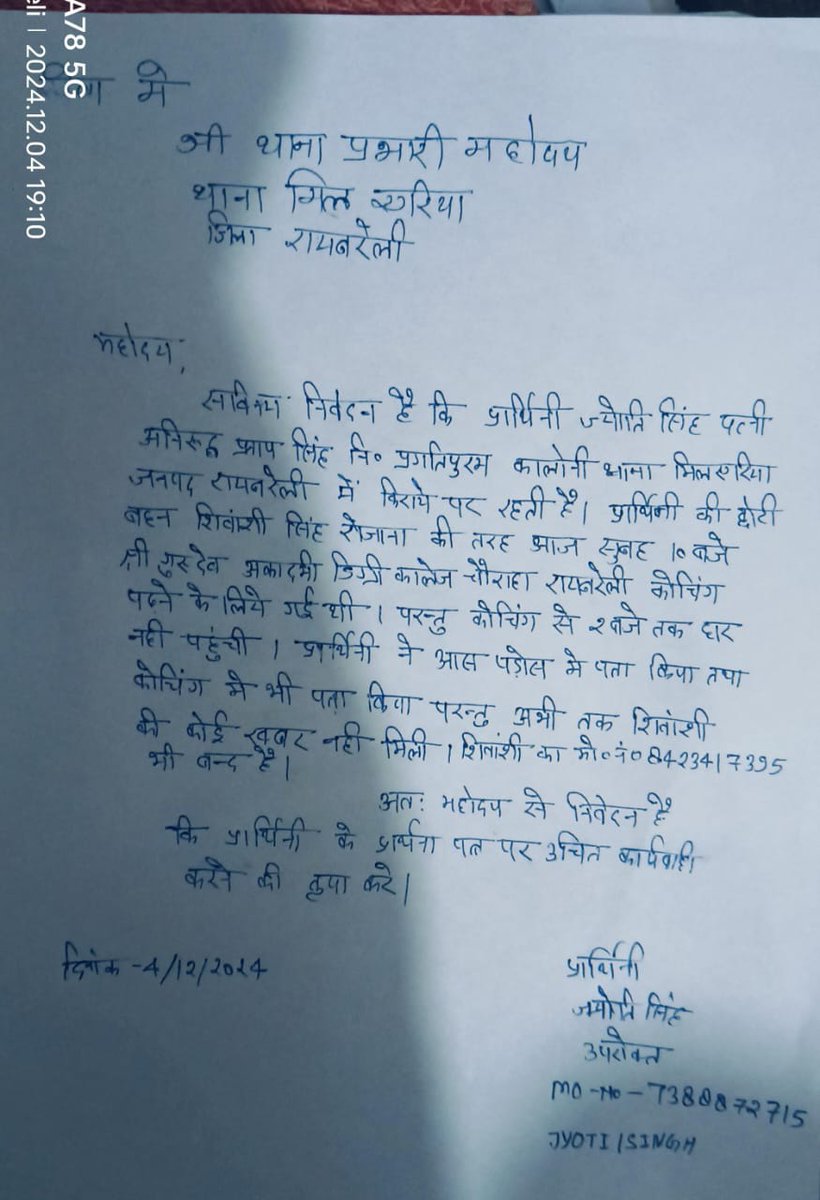 A78 5G
eli | 2024.12.04 19:10
में
श्री थाना प्रभारी महोदय
थाना मिल एरिया
जिला रायबरेली
महोदय,
सविनय निवेदन है कि प्रार्थिनी ज्योति सिंह पत्नी
अनिरूद्ध प्रताप सिंह नि० प्रगतिपुरम कालोनी थाना मिलएरिया
जनपद रायबरेली में किराये पर रहती है। प्रार्थिनी की छोटी
बहन शिवांशी सिंह रोजाना की तरह आज सुबह 10 बजे
श्री गुरूदेव अकादमी डिग्री कालेज चौराहा रायबरेली कोचिंग
पढने के लिये गई थी। परन्तु कोचिंग से २ बजे तक घर
नही पहुंची। प्रार्थिनी ने आस पड़ोस मे पता किया तथा
कोचिंग मे भी पता किया परन्तु अभी तक शिवांशी
की कोई खबर नही मिली। शिवांशी का मो०नं० 8423417395
भी बन्द है।
अतः महोदय से निवेदन है
कि प्रार्थिनी के प्रार्थना पत्र पर उचित कार्यवाही
करने की कृपा करे।
दिनांक -4/12/2024
प्रार्थिनी
ज्योति सिंह
उपरोक्त
MO-NO-7388872715
JYOTI SINGH